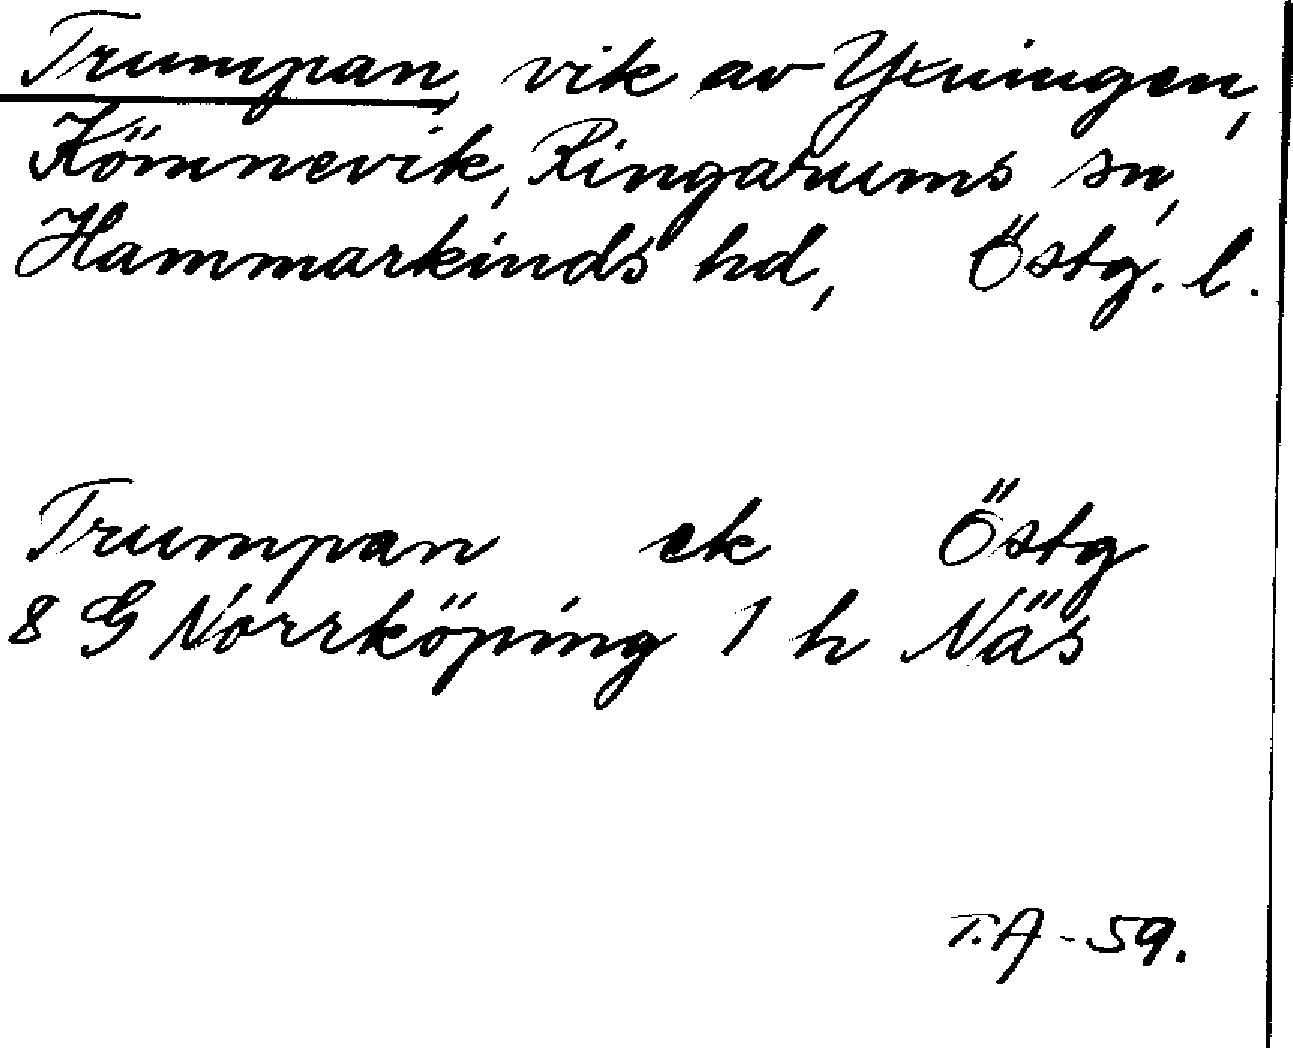 Trumpan, vik av Yxningen,
Kömnevik, Ringarums sn,
Hammarkinds hd, Östg. l.
Trumpan ek Östg
8 G Norrköping 1 h Näs
T.A - 59.